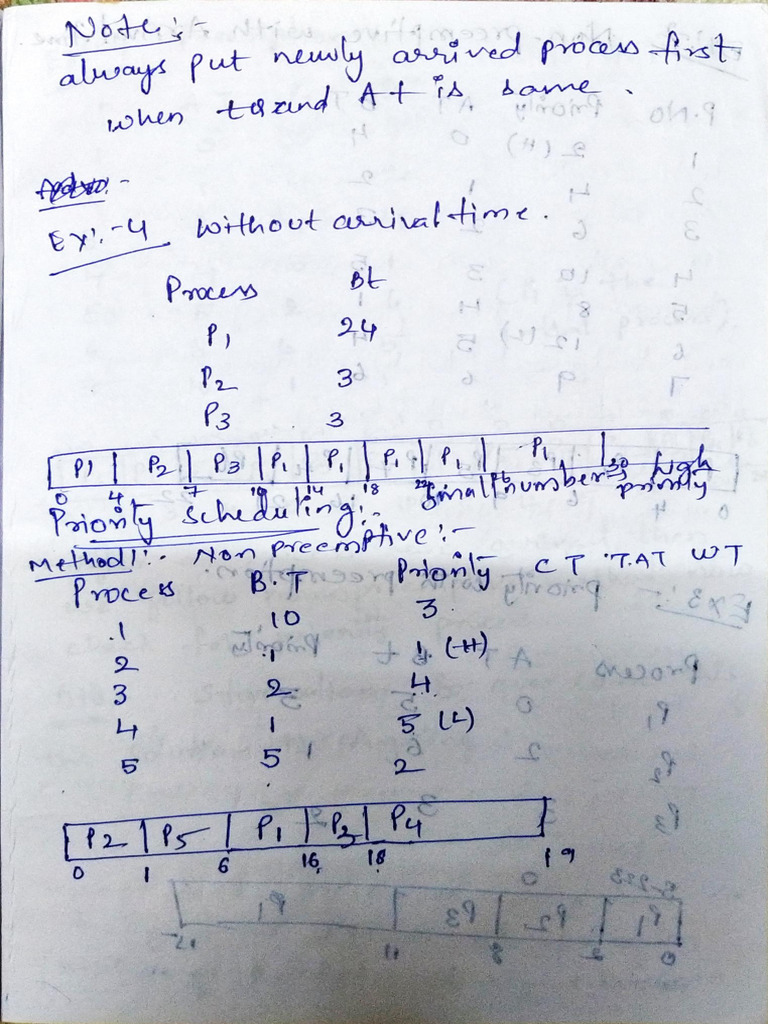 Note :-
always put newly arrived process first
when tq and At is same.
Ex:-4 Without arrival time.
Process Bt
P1 24
P2 3
P3 3
P1 P2 P3 P1 P1 P1 P1 P1
0 4 7 10 14 18 22 26 30
Small number high
priority
Priority Scheduling:-
Method1:- Non preemptive:-
Process B.T Priority CT T.AT WT
1 10 3
2 1 1 (H)
3 2 4
4 1 5 (L)
5 5 2
P2 P5 P1 P3 P4
0 1 6 16 18 19